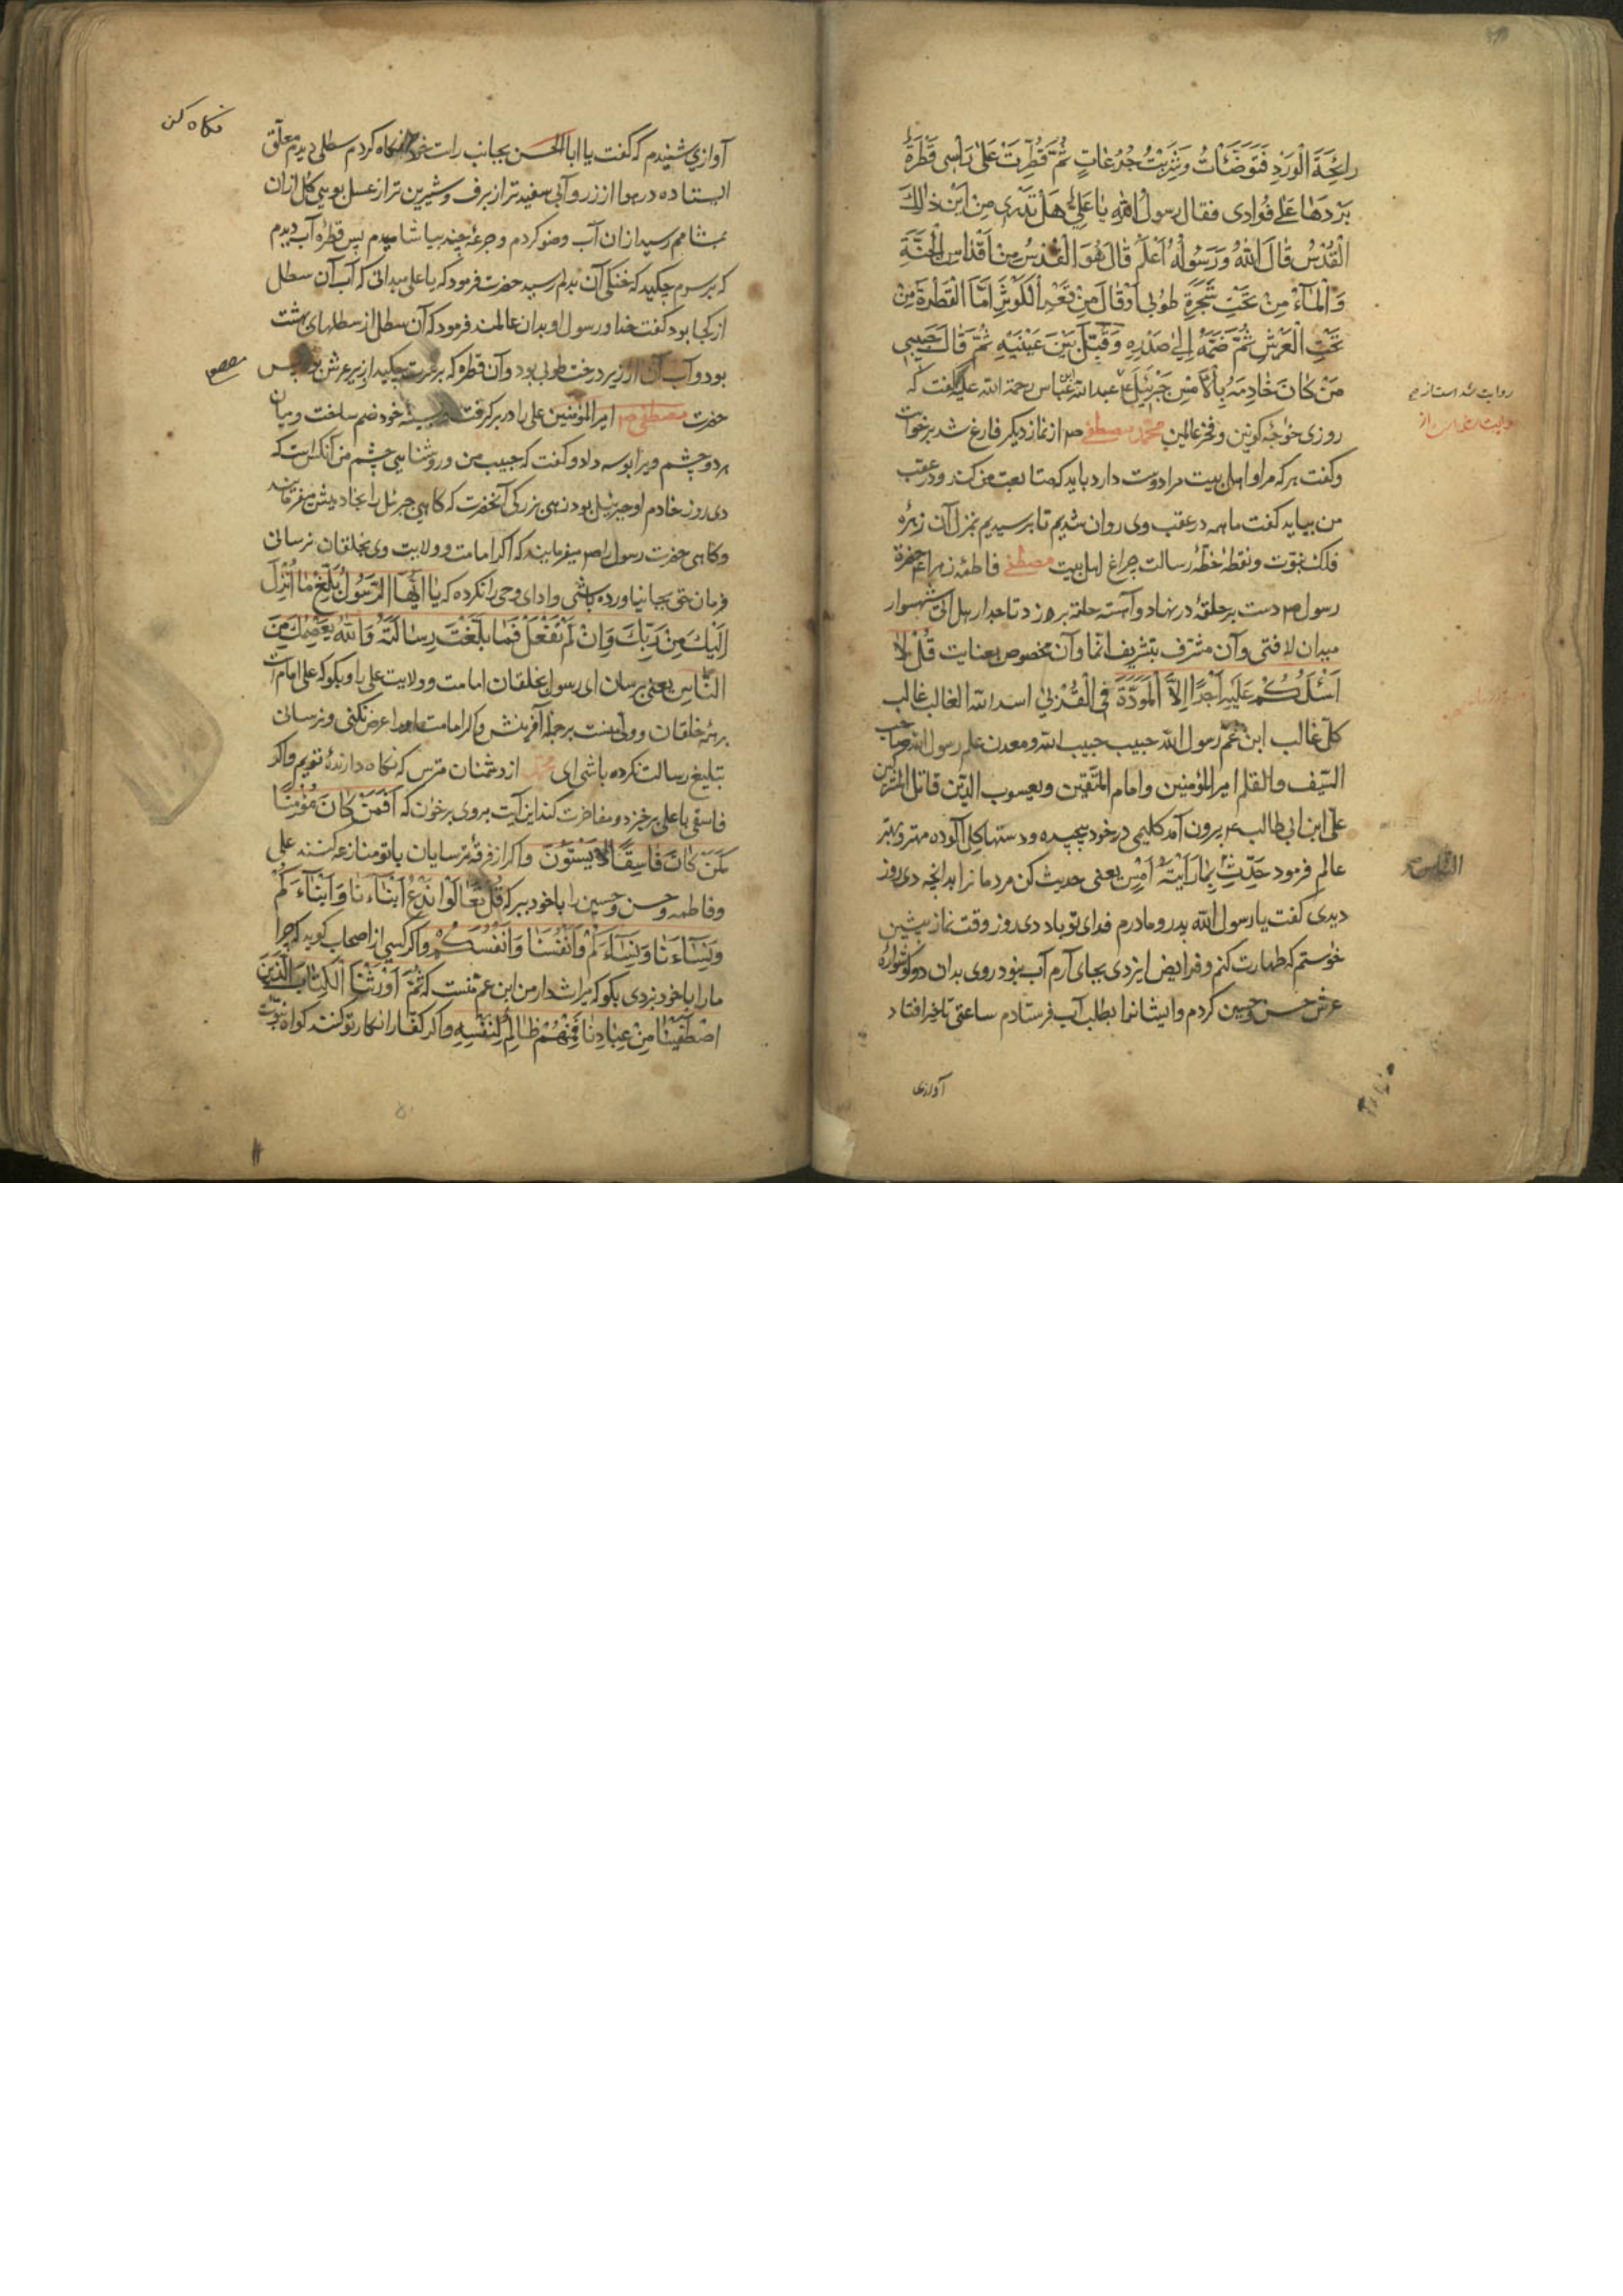 رائِحَةَ الْوَرْدِ فَتَوَضَّأْتُ وَشَرِبْتُ جُرُعَاتٍ ثُمَّ قُطِّرَتْ عَلىٰ رَاْسِی قَطْرَةٌ
بَرْدَهَا عَلیٰ فُوَادی فقال رسولُ اللهِ یا عَلِیُّ هَلْ تَدْری مِنْ اَیْنَ ذٰلِكَ
الْقُدْسُ قالَ اَللهُ وَرَسُولُهُ اَعْلَمُ قٰالَ هُوَ الْقُدْسُ مِنْ اَقْدٰاسِ الْجَنَّةِ
وَالْمٰآءُ مِنْ تَحْتِ شَجَرَةِ طُوبی اَوْ قٰالَ مِنْ نَهْرِ الْكَوْثَرِ اَمَّا الْقَطْرَةُ مِنْ
تَحْتِ الْعَرْشِ ثُمَّ ضَمَّهُ اِلیٰ صَدْرِهِ وَقَبَّلَ بَیْنَ عَیْنَیْهِ ثُمَّ قٰالَ حَبیبی
مَنْ كٰانَ خٰادِمَهُ بِالْاَمْسِ جَبْرَئیلُ عبدالله عباس رحمة الله علیه گفت که
روزی خواجهٔ کونین و فخر عالمین محمد مصطفی ص از نماز دیگر فارغ شد برخواست
وگفت هرکه مرا و اهل بیت مرا دوست دارد باید که متابعت من کند و در عقب
من بیاید گفت ما همه در عقب وی روان شدیم تا برسیدیم بمنزل آن زهرهٔ
فلک نبوّت و نقطهٔ خطّهٔ رسالت چراغ اهل بیت مصطفی فاطمهٔ زهرا حضرة
رسول ص دست بر حلقهٔ در نهاد و آهسته حلقه بر در زد تاجدار هل اتی شهسوار
میدان لا فتی و آن مشرّف بتشریف انّما و آن مخصوص بعنایت قُلْ لٰا
اَسْئَلُكُمْ عَلَیْهِ اَجْرًا اِلَّا الْمَوَدَّةَ فِی الْقُرْبیٰ اسد الله الغالب غالب
کلّ غالب ابن عمّ رسول الله حبیب حبیب الله ومعدن علم رسول الله صاحب
السّیف والقلم امیر المؤمنین وامام المتّقین ویعسوب الدّین قاتل المشرکین
علیّ ابن ابی طالب ع بیرون آمد گلیمی در خود پیچیده ودستها بگل آلوده مهتر و بهتر
عالم فرمود حَدِّثِ بِمٰا رَاَیْتَهُ اَمْسِ یعنی حدیث کن مردمانرا بدانچه دی روز
دیدی گفت یا رسول الله پدر ومادرم فدای تو باد دی روز وقت نماز پیشین
خواستم که طهارت کنم و فرایض ایزدی بجای آرم آب نبود روی بدان دو گوشوارهٔ
عرش حسن وحسین کردم وایشانرا بطلب آب فرستادم ساعتی تأخیر افتاد
آوازی
روایت شده است از
نگاه کن
آوازی شنیدم که گفت یا ابا الحسن بجانب راست خود نگاه کردم سطلی دیدم معلّق
ایستاده در هوا از زر و آبی سفید تر از برف و شیرین تر از عسل بوی گل ازان
بمشامم رسید ازان آب وضو کردم و جرعهٔ چند بیاشامیدم پس قطرهٔ آب دیدم
که بر سرم چکید که خنکی آن بدلم رسید حضرت فرمود که یا علی میدانی که آب آن سطل
از کجا بود گفت خدا و رسول او بدان عالمند فرمود که آن سطل از سطلهای بهشت
بود و آب آن از زیر درخت طوبی بود و آن قطره که بر سرت چکید از زیر عرش بود پس
حضرت مصطفی ص امیر المؤمنین علی را در بر گرفت وبسینهٔ خود ضم ساخت ومیان
هر دو چشم ویرا بوسه داد و گفت که حبیب من وروشنایی چشم من آنکس است که
دی روز خادم او جبرئیل بود زهی بزرگی آنحضرت که گاهی جبرئیل را بخادمیش میفرمایند
وگاهی حضرت رسول را ص میفرمایند که اگر امامت و ولایت وی بخلقان نرسانی
فرمان حق بجا نیاورده باشی و ادای وحی را نکرده که یٰا اَیُّهَا الرَّسُولُ بَلِّغْ مٰا اُنْزِلَ
اِلَیْكَ مِنْ رَبِّكَ وَاِنْ لَمْ تَفْعَلْ فَمٰا بَلَّغْتَ رِسٰالَتَهُ وَاللهُ یَعْصِمُكَ مِنَ
النّاسِ یعنی برسان ای رسول بخلقان امامت و ولایت علی را و بگو که علی امام است
بر همهٔ خلقان وولّیست بر جملهٔ آفرینش واگر امامت اورا عرض نکنی و نرسانی
تبلیغ رسالت نکرده باشی ای محمد از دشمنان مترس که نگاه دارندهٔ تویم واگر
فاسقی با علی برخیزد و مفاخرت کند این آیت بر وی برخوان که اَفَمَنْ كٰانَ مُؤْمِنًا
كَمَنْ كٰانَ فٰاسِقًا لٰا یَسْتَوُنَ واگر از فرقهٔ ترسایان با تو منازعه کنند علی
وفاطمه وحسن وحسین را با خود ببر که قُلْ تَعٰالَوْا نَدْعُ اَبْنٰآءَنٰا وَاَبْنٰآءَكُمْ
وَنِسٰآءَنٰا وَنِسٰآءَكُمْ وَاَنْفُسَنٰا وَاَنْفُسَكُمْ واگر کسی از اصحاب گوید که چرا
مارا با خود نبردی بگو که میراث دار من ابن عم منست که ثُمَّ اَوْرَثْنَا الْكِتٰابَ الَّذینَ
اصْطَفَیْنٰا مِنْ عِبٰادِنٰا فَمِنْهُمْ ظٰالِمٌ لِنَفْسِهِ واگر کفّار انکار تو کنند گواه نبوّت